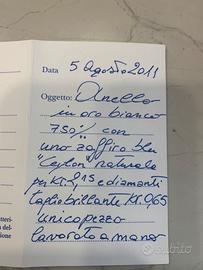 Data 5 Agosto 2011
Oggetto: Anello
in oro bianco
750% con
uno zaffiro blu
"Ceylon" naturale
per Kt. 9,15 e diamanti
taglio brillante Kt. 0,65
unico pezzo
lavorato a mano
subito